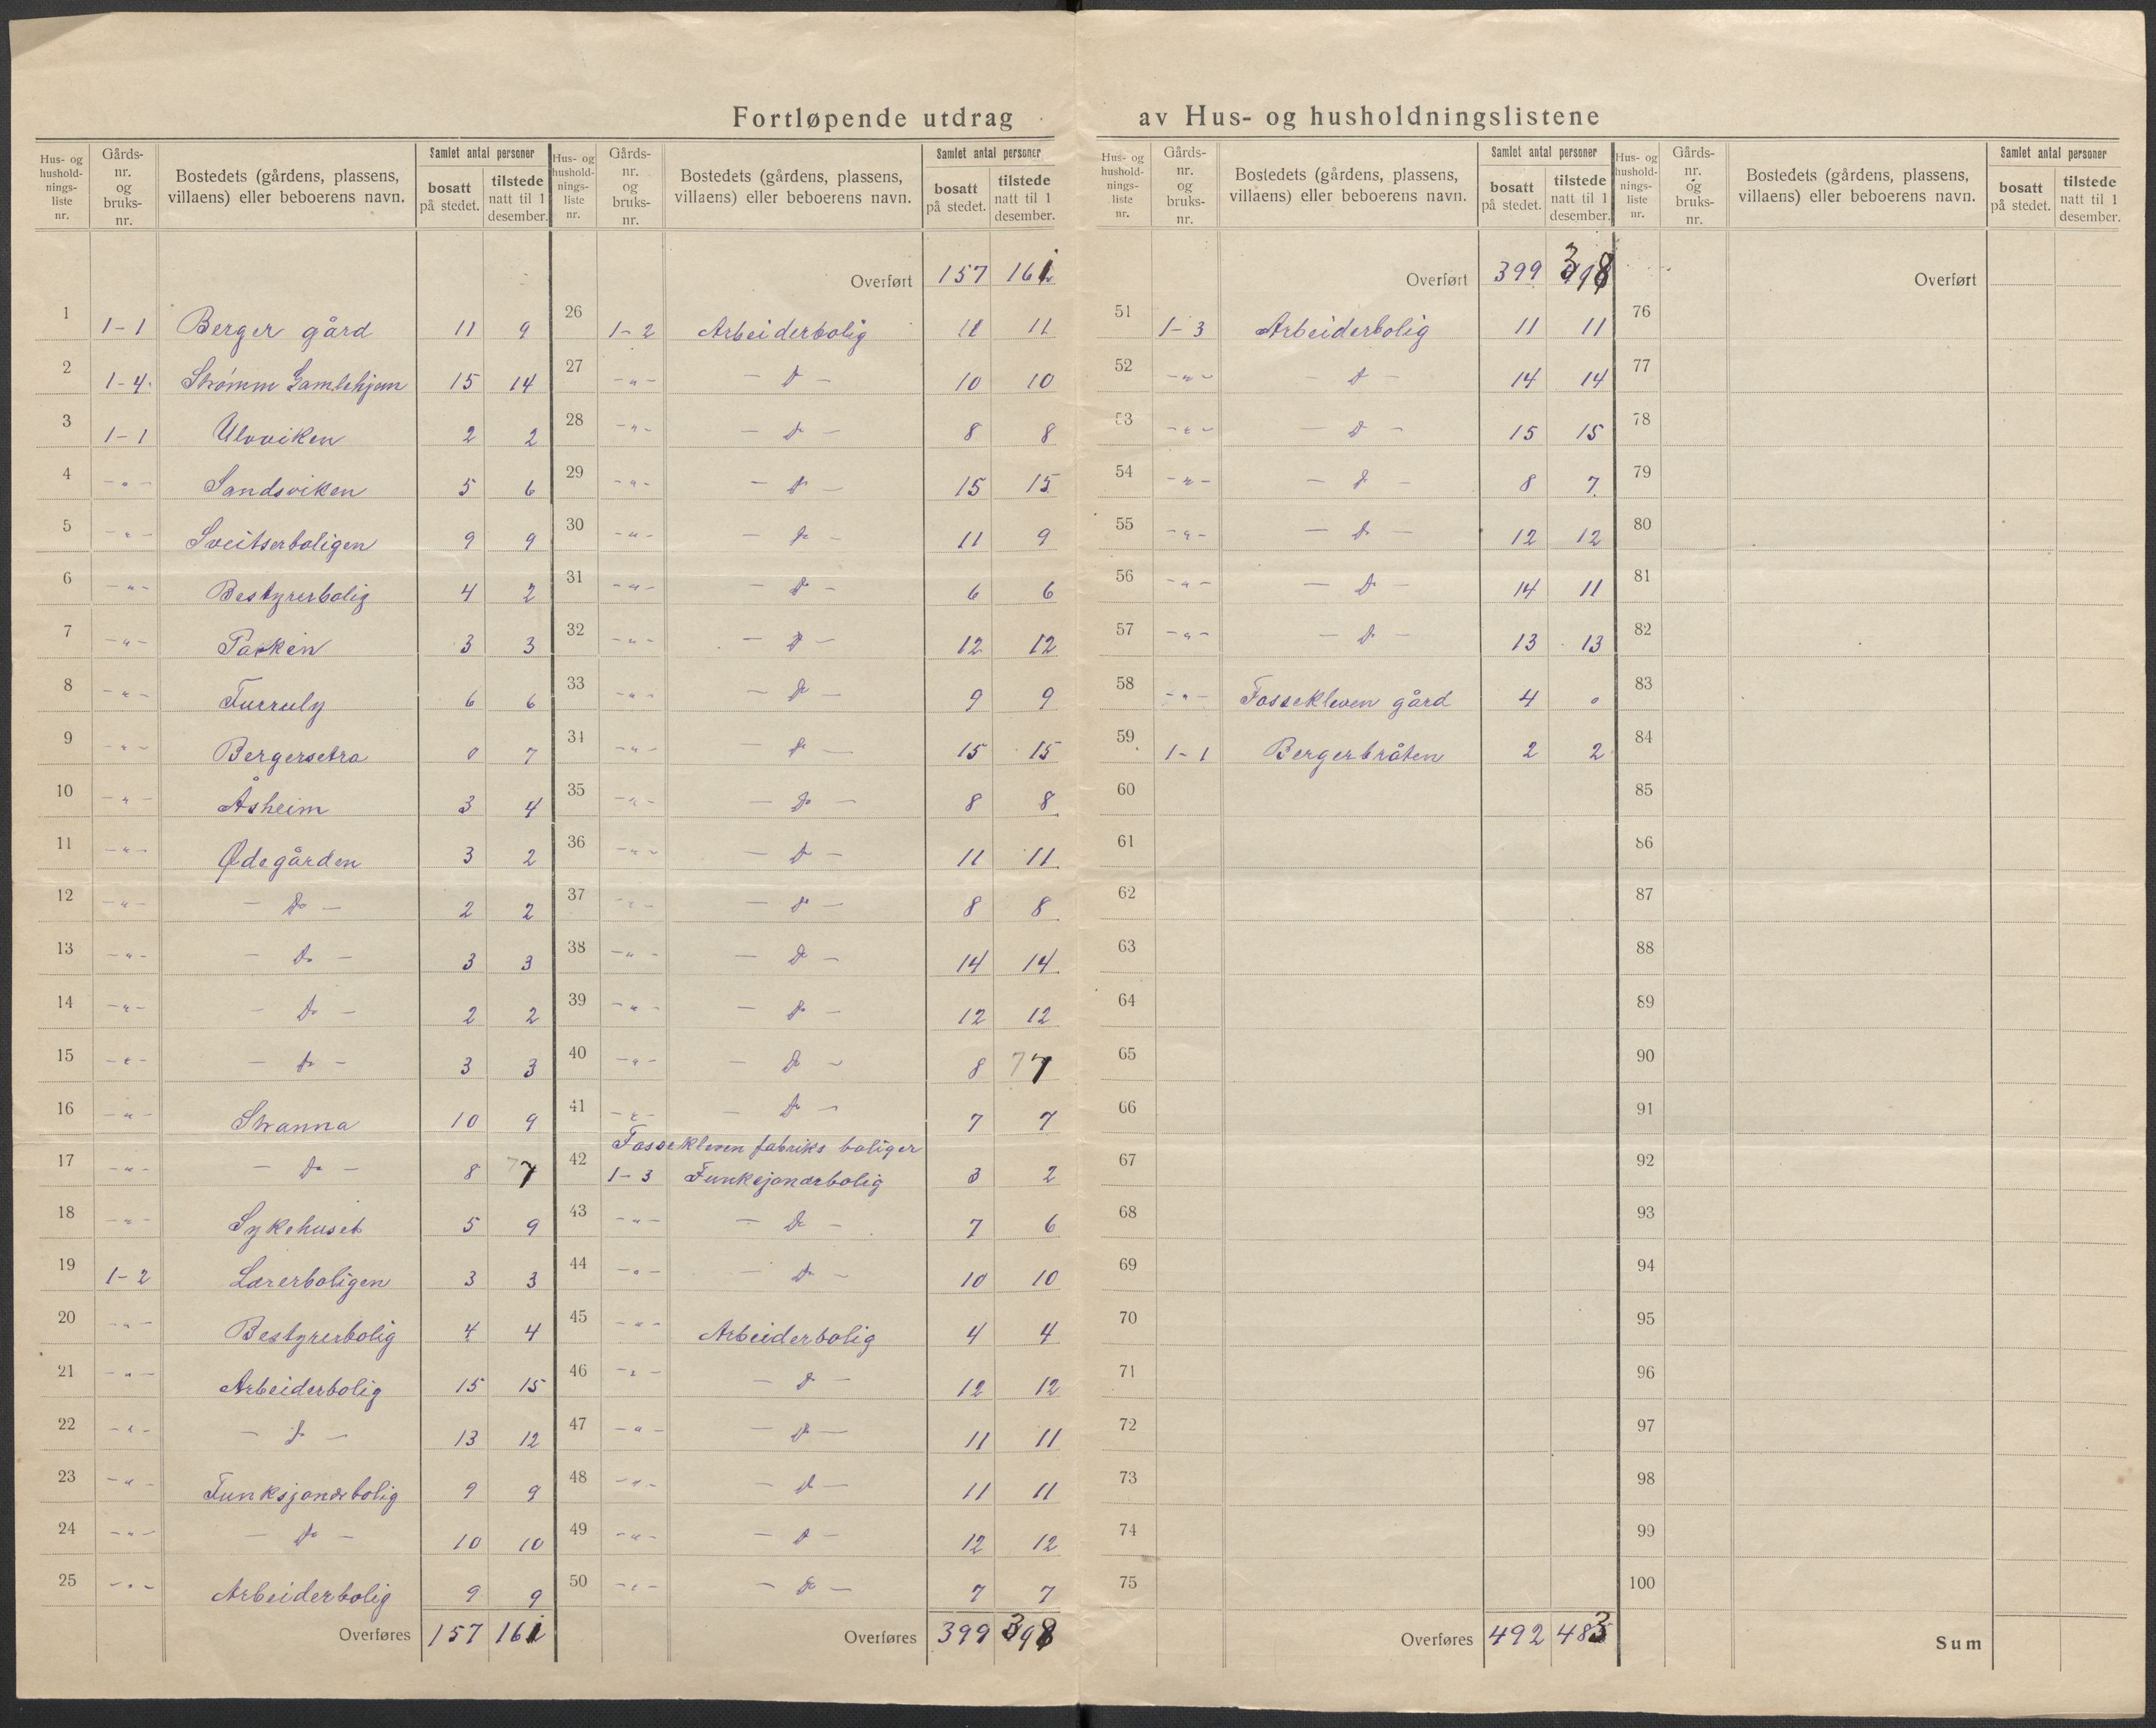 Fortløpende utdrag av Hus- og husholdningslistene
Hus- og husholdnings-liste nr. | Gårds-nr. og bruks-nr. | Bostedets (gårdens, plassens, villaens) eller beboerens navn. | Samlet antal personer: bosatt på stedet. | tilstede natt til 1 desember.
1 | 1-1 | Berger gård | 11 | 9
2 | 1-4 | Strømm Gamlehjem | 15 | 14
3 | 1-1 | Ulvviken | 2 | 2
4 | -"- | Sandsviken | 5 | 6
5 | -"- | Sveitserboligen | 9 | 9
6 | -"- | Bestyrerbolig | 4 | 2
7 | -"- | Parken | 3 | 3
8 | -"- | Furruly | 6 | 6
9 | -"- | Bergersetra | 0 | 7
10 | -"- | Åsheim | 3 | 4
11 | -"- | Ødegården | 3 | 2
12 | -"- | - Do - | 2 | 2
13 | -"- | - Do - | 3 | 3
14 | -"- | - Do - | 2 | 2
15 | -"- | - Do - | 3 | 3
16 | -"- | Stranna | 10 | 9
17 | -"- | - Do - | 8 | 7
18 | -"- | Sykehuset | 5 | 9
19 | 1-2 | Lærerboligen | 3 | 3
20 | -"- | Bestyrerbolig | 4 | 4
21 | -"- | Arbeiderbolig | 15 | 15
22 | -"- | - Do - | 13 | 12
23 | -"- | Funksjonærbolig | 9 | 9
24 | -"- | - Do - | 10 | 10
25 | -"- | Arbeiderbolig | 9 | 9
Overføres | 157 | 161
Hus- og husholdnings-liste nr. | Gårds-nr. og bruks-nr. | Bostedets (gårdens, plassens, villaens) eller beboerens navn. | Samlet antal personer: bosatt på stedet. | tilstede natt til 1 desember.
Overført | 157 | 161
26 | 1-2 | Arbeiderbolig | 11 | 11
27 | -"- | - Do - | 10 | 10
28 | -"- | - Do - | 8 | 8
29 | -"- | - Do - | 15 | 15
30 | -"- | - Do - | 11 | 9
31 | -"- | - Do - | 6 | 6
32 | -"- | - Do - | 12 | 12
33 | -"- | - Do - | 9 | 9
34 | -"- | - Do - | 15 | 15
35 | -"- | - Do - | 8 | 8
36 | -"- | - Do - | 11 | 11
37 | -"- | - Do - | 8 | 8
38 | -"- | - Do - | 14 | 14
39 | -"- | - Do - | 12 | 12
40 | -"- | - Do - | 8 | 7
41 | -"- | - Do - | 7 | 7
Fossekleven fabriks boliger
42 | 1-3 | Funksjonærbolig | 3 | 2
43 | -"- | - Do - | 7 | 6
44 | -"- | - Do - | 10 | 10
45 | -"- | Arbeiderbolig | 4 | 4
46 | -"- | - Do - | 12 | 12
47 | -"- | - Do - | 11 | 11
48 | -"- | - Do - | 11 | 11
49 | -"- | - Do - | 12 | 12
50 | -"- | - Do - | 7 | 7
Overføres | 399 | 398
Hus- og husholdnings-liste nr. | Gårds-nr. og bruks-nr. | Bostedets (gårdens, plassens, villaens) eller beboerens navn. | Samlet antal personer: bosatt på stedet. | tilstede natt til 1 desember.
Overført | 399 | 398
51 | 1-3 | Arbeiderbolig | 11 | 11
52 | -"- | - Do - | 14 | 14
53 | -"- | - Do - | 15 | 15
54 | -"- | - Do - | 8 | 7
55 | -"- | - Do - | 12 | 12
56 | -"- | - Do - | 14 | 11
57 | -"- | - Do - | 13 | 13
58 | -"- | Fossekleven gård | 4 | 0
59 | 1-1 | Bergerbråten | 2 | 2
60
61
62
63
64
65
66
67
68
69
70
71
72
73
74
75
Overføres | 492 | 483
Hus- og husholdnings-liste nr. | Gårds-nr. og bruks-nr. | Bostedets (gårdens, plassens, villaens) eller beboerens navn. | Samlet antal personer: bosatt på stedet. | tilstede natt til 1 desember.
Overført
76
77
78
79
80
81
82
83
84
85
86
87
88
89
90
91
92
93
94
95
96
97
98
99
100
Sum